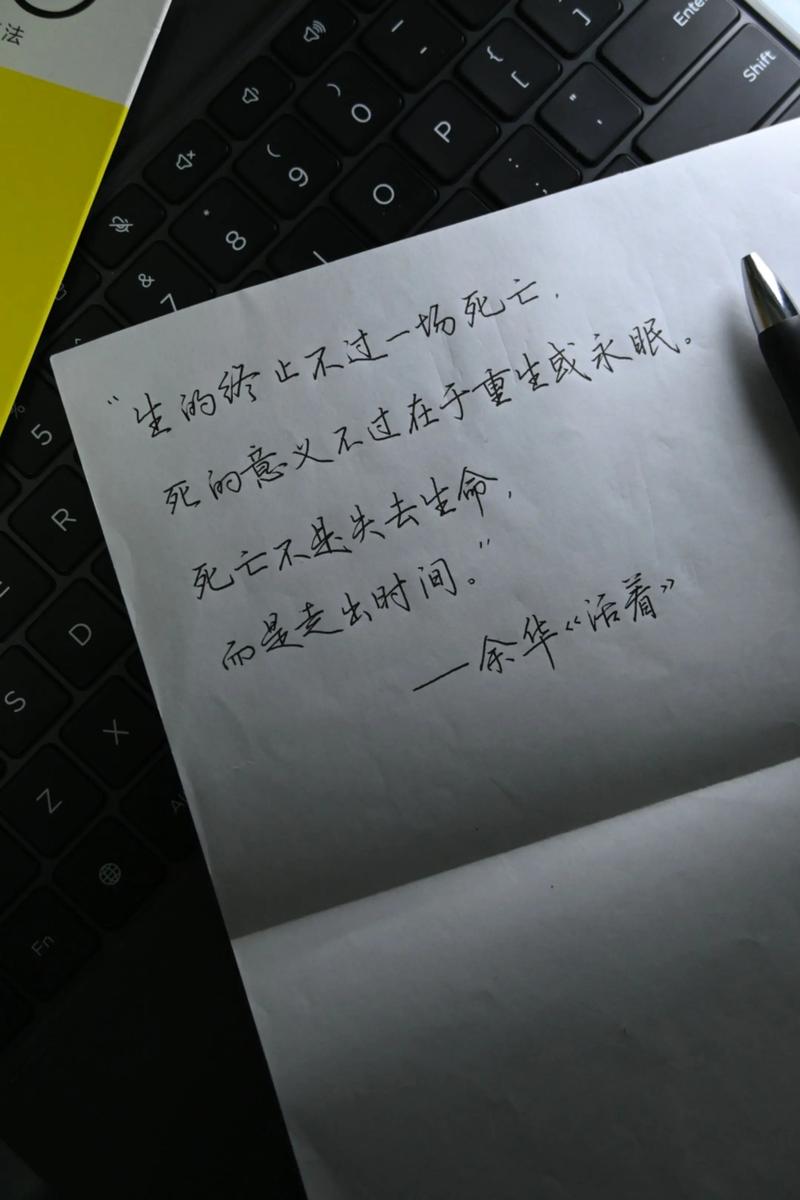 法
Enter
Shift
{
[
]
"
'
:
;
P
O
)
0
(
9
*
8
&
7
%
5
R
D
S
X
Z
Fn
“生的终止不过一场死亡,
死的意义不过在于重生或永眠。
死亡不是失去生命,
而是走出时间。”
——余华《活着》